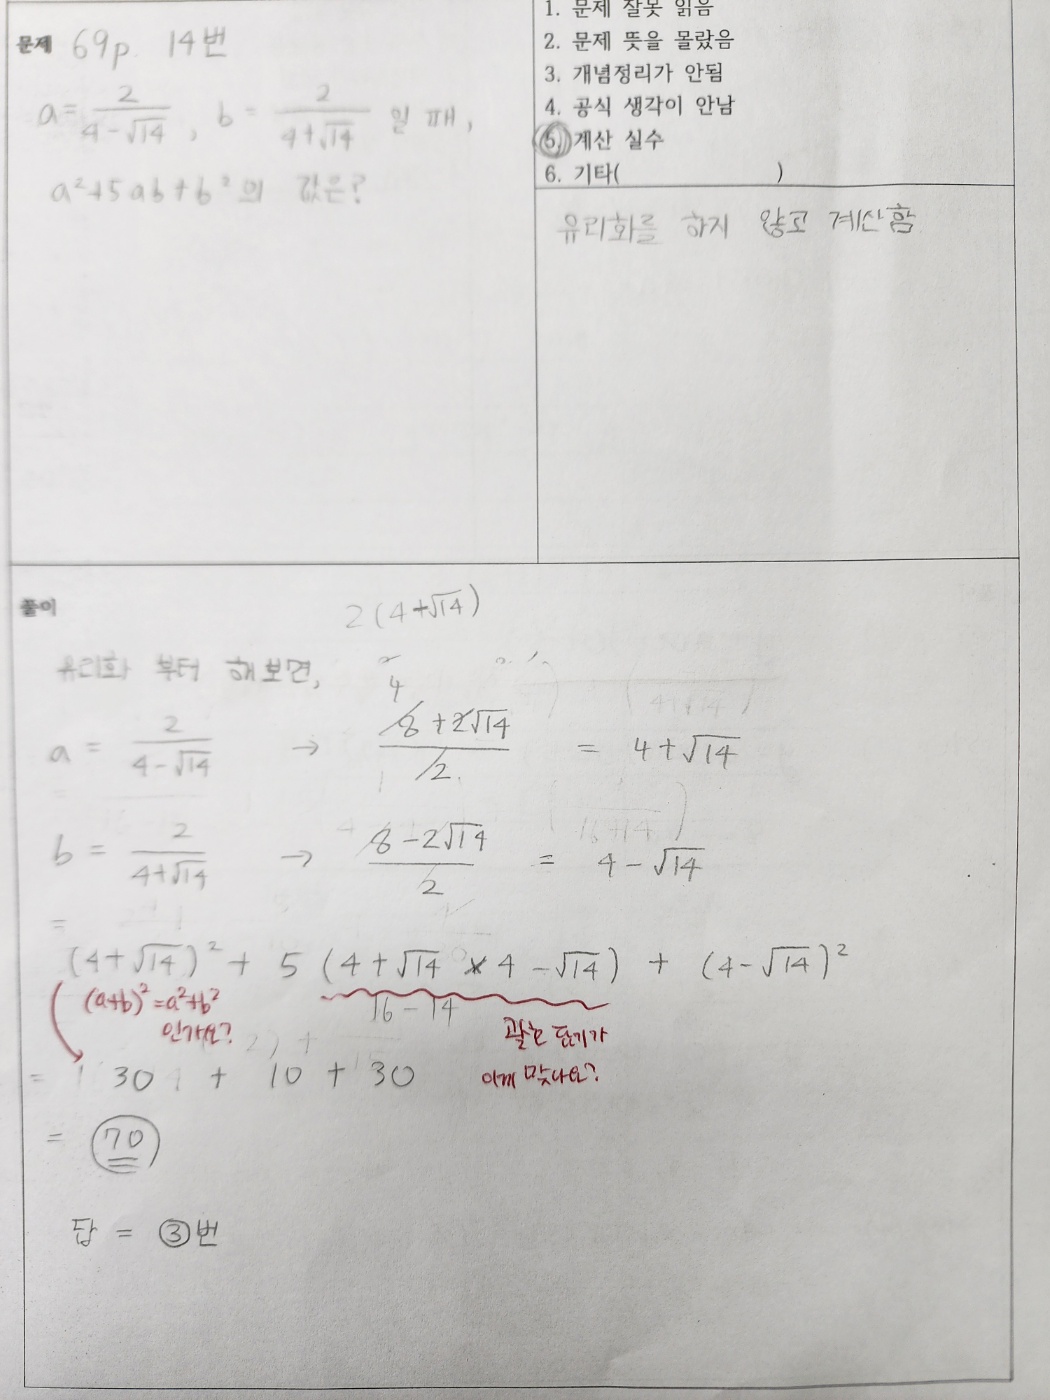 문제 69p. 14번
a = 2/(4-√14), b = 2/(4+√14) 일 때,
a²+5ab+b²의 값은?
1. 문제 잘못 읽음
2. 문제 뜻을 몰랐음
3. 개념정리가 안됨
4. 공식 생각이 안남
5. 계산 실수
6. 기타( )
유리화를 하지 않고 계산함
풀이
2(4+√14)
유리화 부터 해보면,
4
a = 2/(4-√14) → (8+2√14)/2 = 4+√14
1
b = 2/(4+√14) → (8-2√14)/2 = 4-√14
(4+√14)² + 5(4+√14 × 4-√14) + (4-√14)²
(a+b)²=a²+b²
인가요?
16-14
괄호 닫기가
이게 맞나요?
= 30 + 10 + 30
= 70
답 = ③번